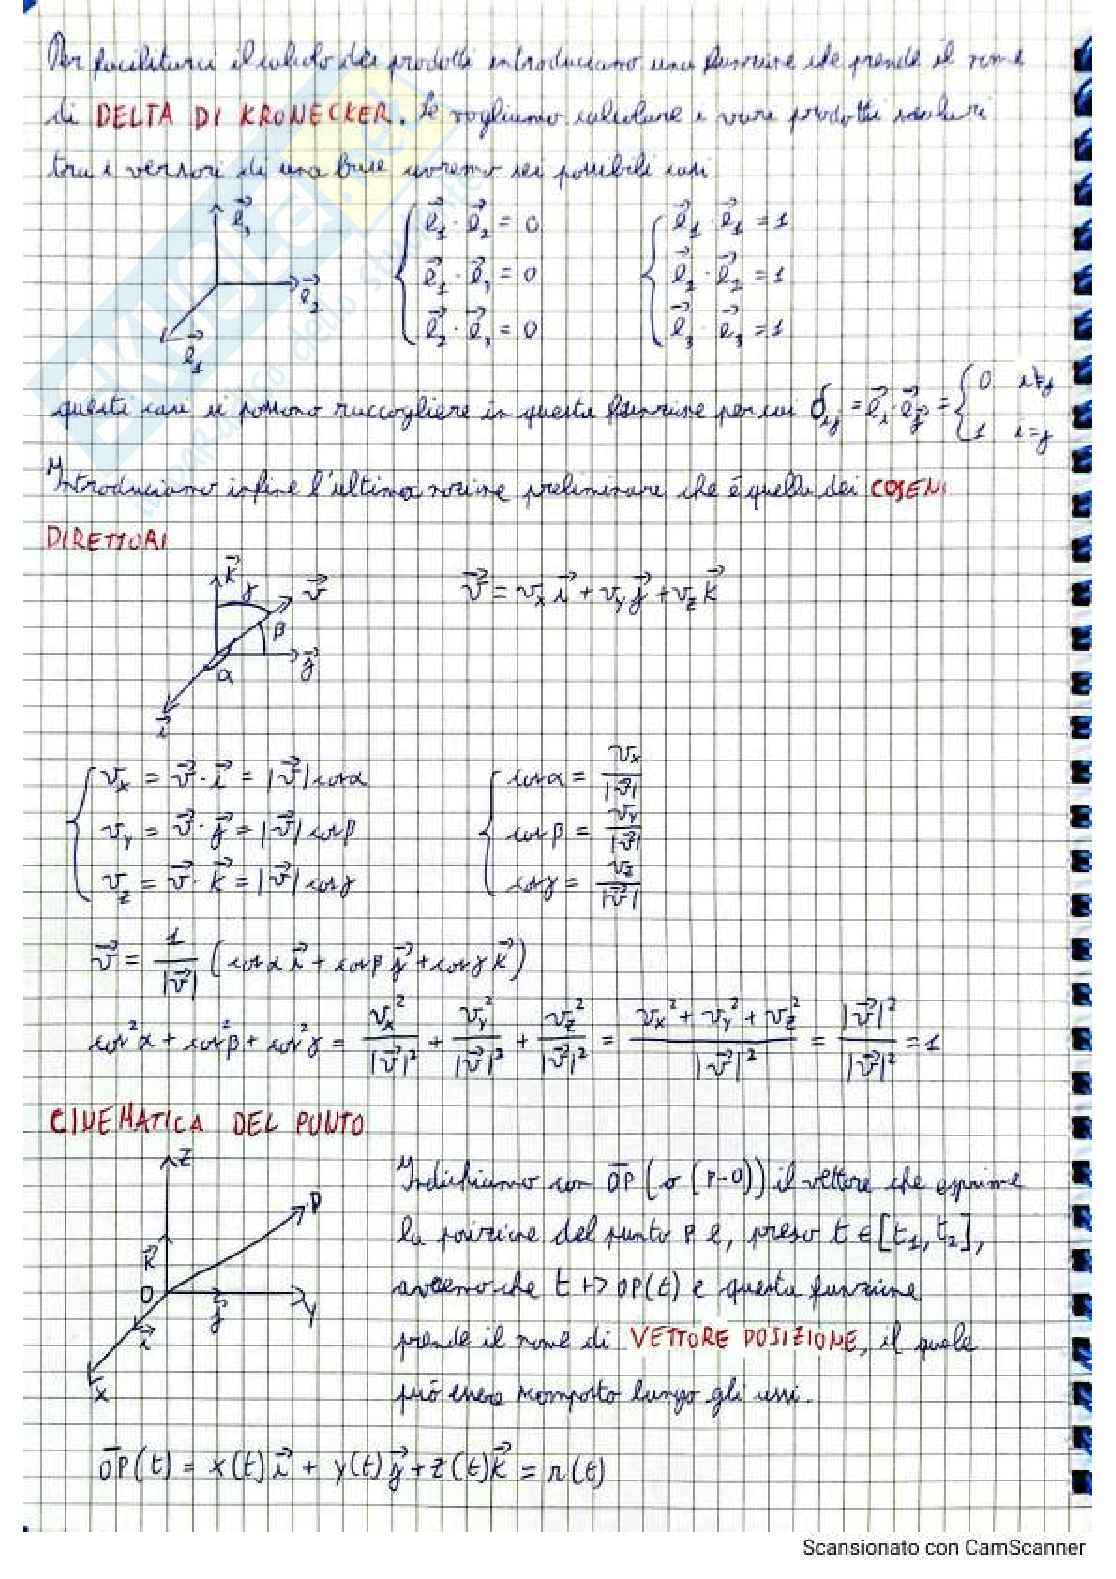 Per facilitarci il calcolo dei prodotti introduciamo una funzione che prende il nome
di DELTA DI KRONECKER. Se vogliamo calcolare i vari prodotti scalari
tra i versori di una base avremo sei possibili casi
e⃗₃
e⃗₂
e⃗₁
e⃗₁ · e⃗₂ = 0
e⃗₁ · e⃗₃ = 0
e⃗₂ · e⃗₃ = 0
e⃗₁ · e⃗₁ = 1
e⃗₂ · e⃗₂ = 1
e⃗₃ · e⃗₃ = 1
questi casi si possono raccogliere in questa funzione per cui δᵢⱼ = e⃗ᵢ · e⃗ⱼ = { 0 i≠j
1 i=j
Introduciamo infine l'ultima nozione preliminare che è quella dei COSENI
DIRETTORI
k⃗ γ v⃗
β
α j⃗
i⃗
v⃗ = vₓ i⃗ + v_y j⃗ + v_z k⃗
vₓ = v⃗ · i⃗ = |v⃗| cosα
v_y = v⃗ · j⃗ = |v⃗| cosβ
v_z = v⃗ · k⃗ = |v⃗| cosγ
cosα = vₓ / |v⃗|
cosβ = v_y / |v⃗|
cosγ = v_z / |v⃗|
v⃗ = 1/|v⃗| (cosα i⃗ + cosβ j⃗ + cosγ k⃗)
cos²α + cos²β + cos²γ = vₓ²/|v⃗|² + v_y²/|v⃗|² + v_z²/|v⃗|² = (vₓ² + v_y² + v_z²)/|v⃗|² = |v⃗|²/|v⃗|² = 1
CINEMATICA DEL PUNTO
z
P
k⃗
O
j⃗ y
i⃗
x
Indichiamo con OP (o (P-O)) il vettore che esprime
la posizione del punto P e, preso t ∈ [t₁, t₂],
avremo che t ↦ OP(t) e questa funzione
prende il nome di VETTORE POSIZIONE, il quale
può essere scomposto lungo gli assi.
OP(t) = x(t) i⃗ + y(t) j⃗ + z(t) k⃗ = r(t)
Scansionato con CamScanner